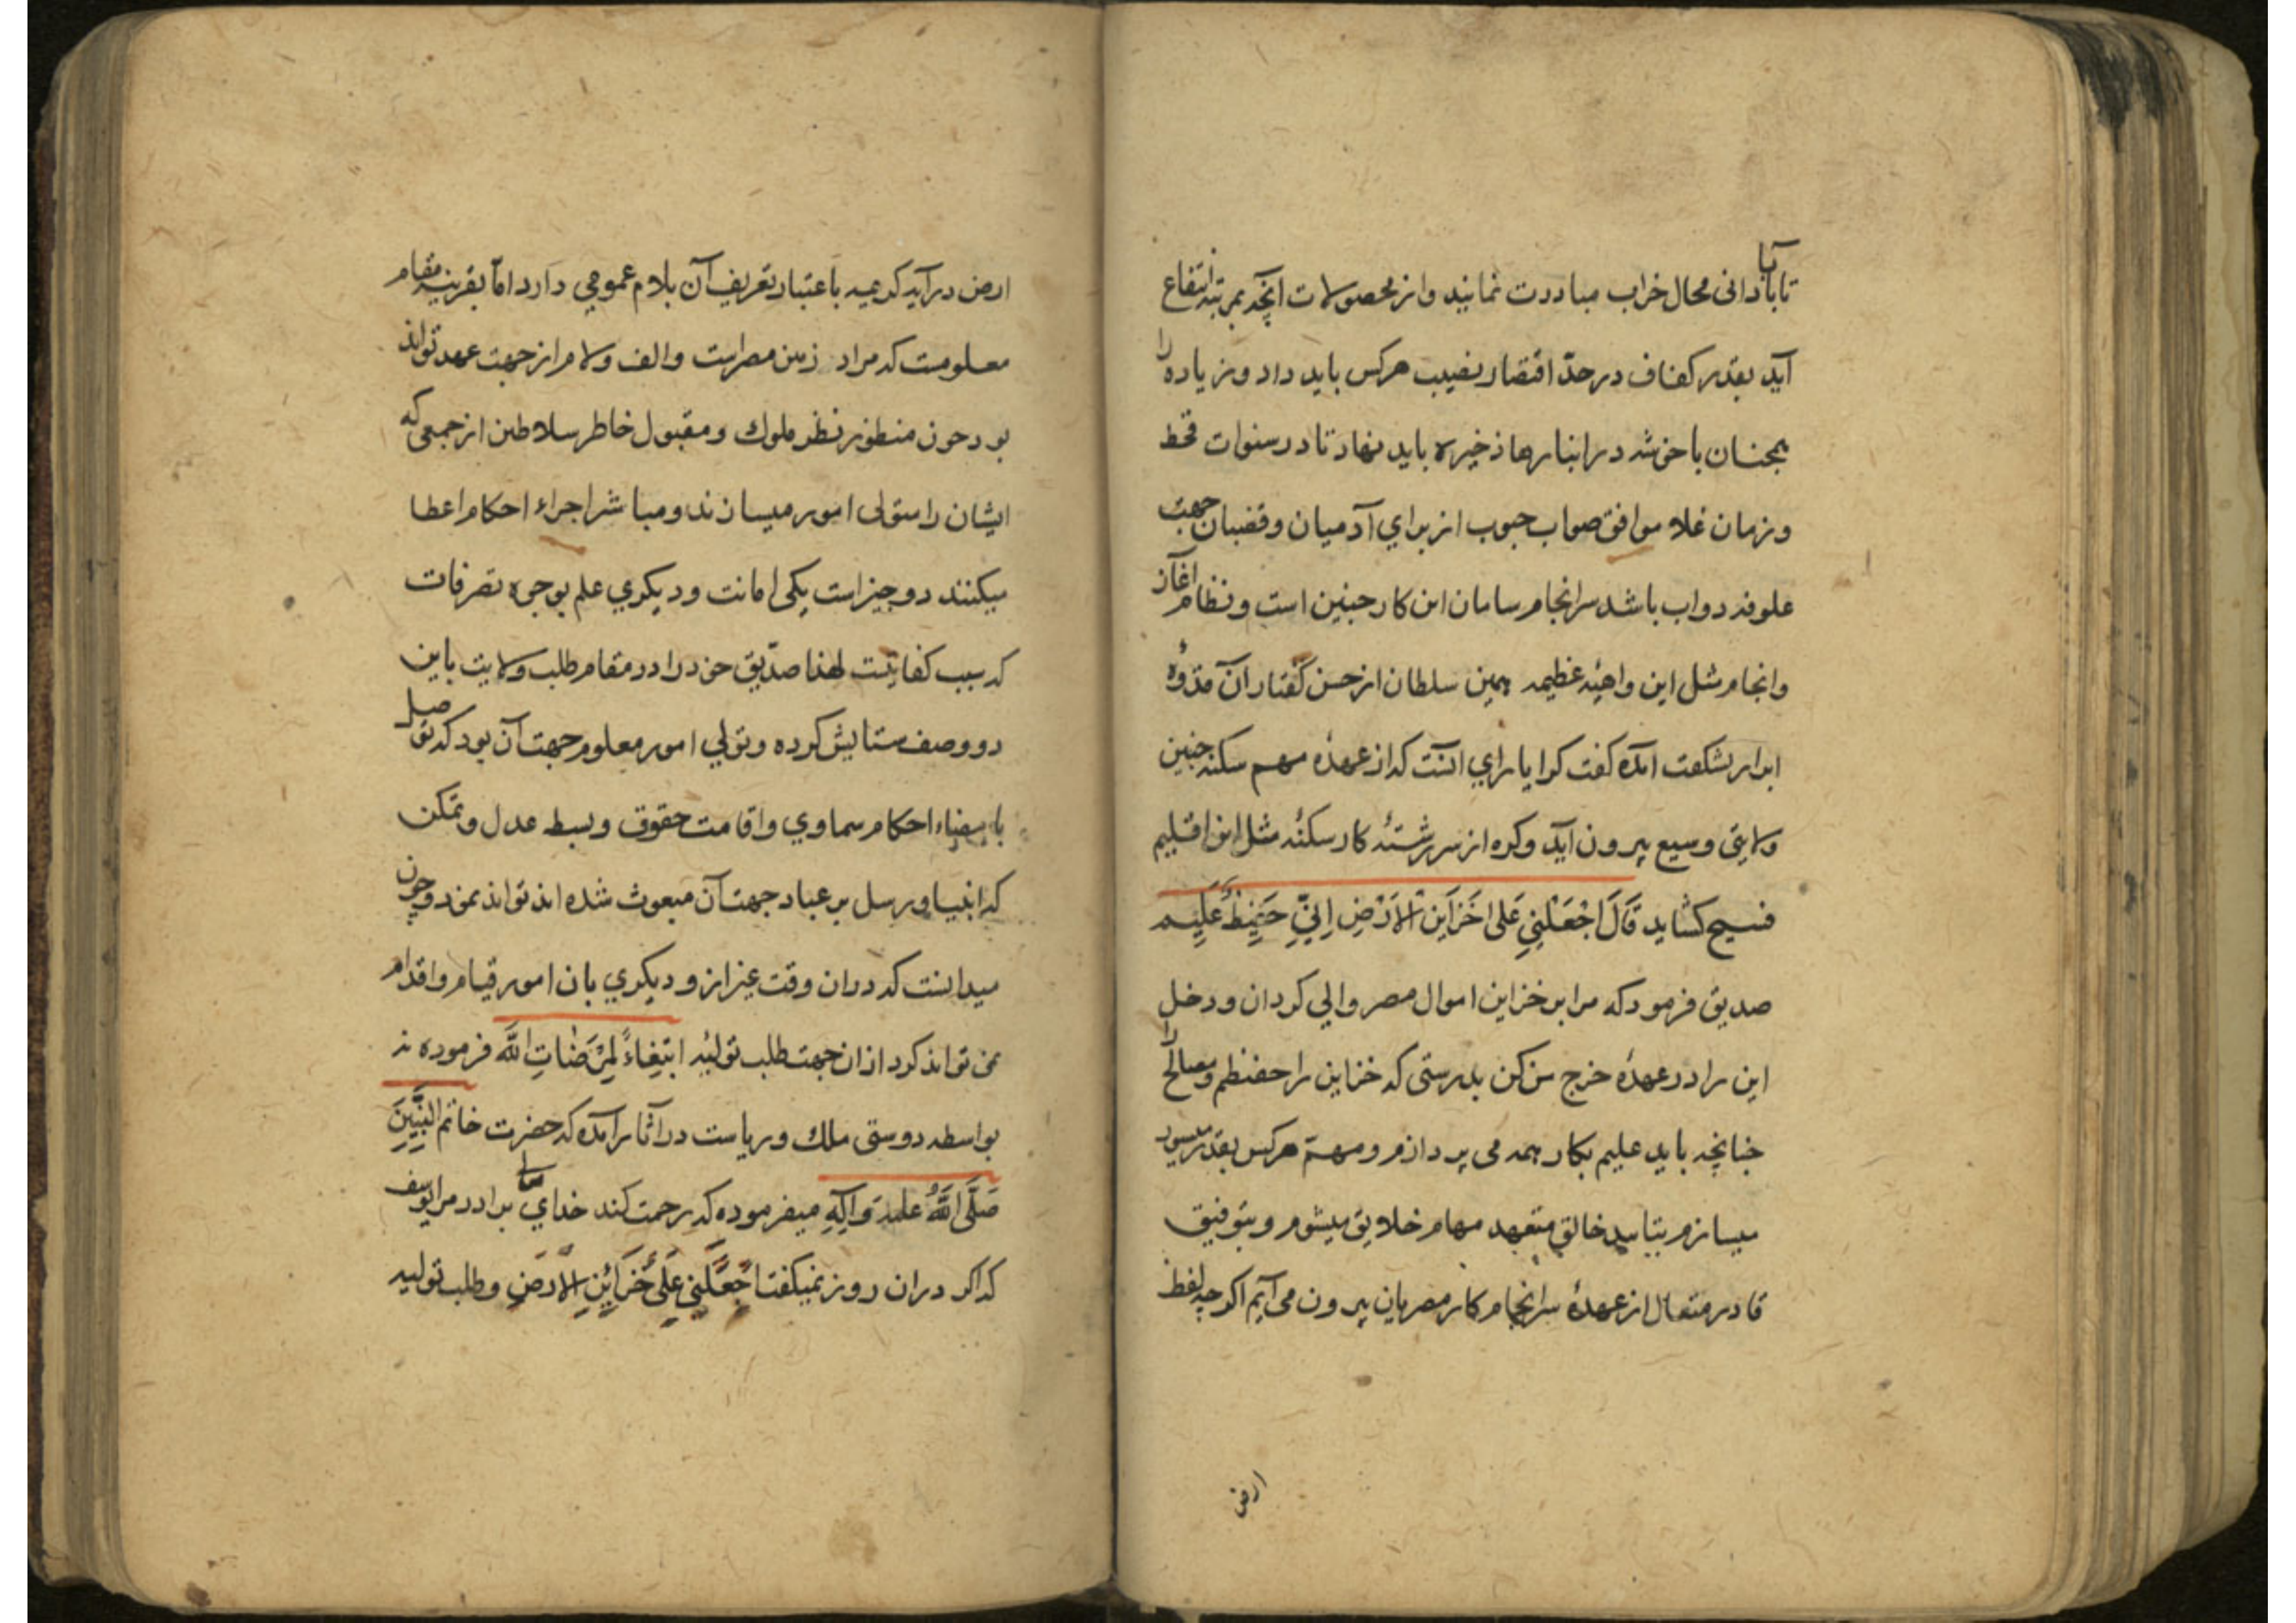 تا بابادانی محال خراب مبادرت نمایند و از محصولات آنچه بمرتبه انتفاع
آید بقدر کفاف در حدّ اقتصار نصیب هرکس باید داد و زیاده را
همچنان با خوشه در انبارها ذخیره باید نهاد تا در سنوات قحط
و زمان غلا موافق صواب حبوب از برای آدمیان و قضبان جهت
علوفه دواب باشد سرانجام سامان این کار چنین است و نظام آغاز
و انجام مثل این واهیهٔ عظیمه همین سلطان از حسن گفتار آن قدوهٔ
ابرار بشکفت آمده گفت کرا یارای آنست که از عهدهٔ مهم سکنه چنین
ولایتی وسیع بیرون آید و کره از سر رشتهٔ کار سکنهٔ مثل این اقلیم
فسیح کشاید قَالَ اجْعَلْنِي عَلَى خَزَاینِ الْاَرْضِ اِنِّي حَفِيظٌ عَلِيم
صدیق فرمود که مرا بر خزاین اموال مصر والی کردان و دخل
این را در عهدهٔ خرج من کن بدرستی که خزاین را حفیظم و مصالح را
چنانچه باید علیم بکار همه می پردازم و مهمّ هرکس بقدر میسور
میسازم بتایید خالق متعهد مهام خلایق میشوم و بتوفیق
قادر متعال از عهدهٔ سرانجام کار مصریان بیرون می آیم اکرچه لفظ
ارض
ارض در آیه کریمه باعتبار تعریف آن بلام عمومی دارد امّا بقرینه مقام
معلومست که مراد زمین مصر است و الف و لام از جهت عهد تواند
بود چون منظور نظر ملوک و مقبول خاطر سلاطین از جمعی که
ایشان را متولی امور میسازند و مباشر اجراء احکام اعطا
میکنند دو چیز است یکی امانت و دیکری علم بوجوه تصرفات
که سبب کفایتست لهذا صدّیق خود را در مقام طلب ولایت باین
دو وصف ستایش کرده و تولی امور معلوم جهت آن بود که توصل
بامضاء احکام سماوی و اقامت حقوق و بسط عدل و تمکن
که انبیا و رسل بر عباد جهت آن مبعوث شده اند تواند نمود و چون
میدانست که در ان وقت غیر از و دیکری بان امور قیام و اقدام
نمی تواند کرد از ان جهت طلب تولیه ابْتِغَاءً لِمَرْضَاتِ اللَّه فرموده نه
بواسطه دوستی ملک و ریاست در آثار آمده که حضرت خاتم النَّبِيّينَ
صَلَّى اللَّهُ عليه وَآلِهِ میفرموده که رحمت کند خدای برادر مرا یوسف
که اکر در ان روز نمیکفت اجْعَلْنِي عَلَى خَزَائِنِ الْاَرْضِ و طلب تولیه